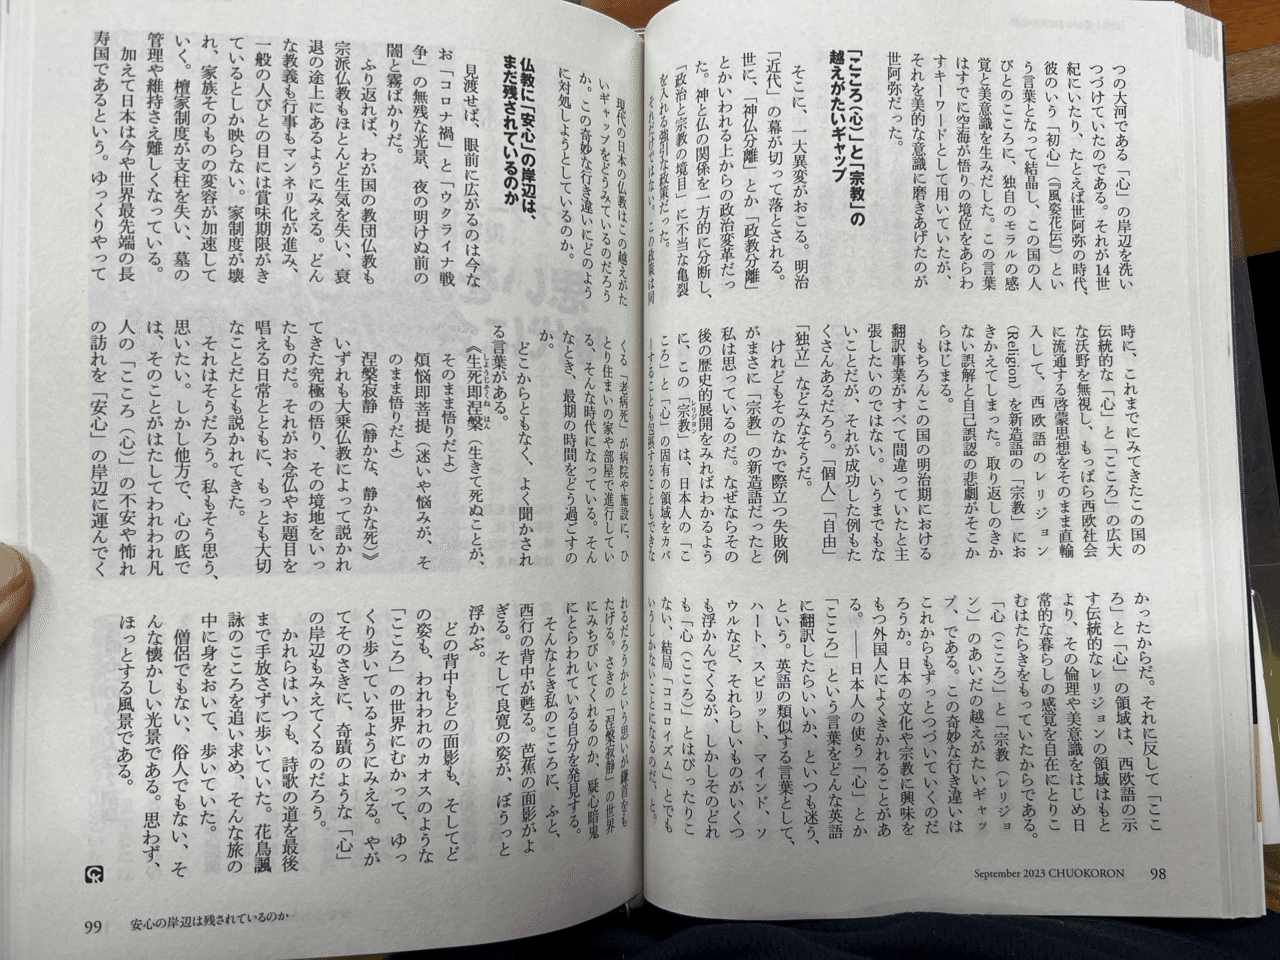 つの大河である「心」の岸辺を洗い
つづけていたのである。それが14世
紀にいたり、たとえば世阿弥の時代、
彼のいう「初心」（『風姿花伝』）とい
う言葉となって結晶し、この国の人
びとのこころに、独自のモラルの感
覚と美意識を生みだした。この言葉
はすでに空海が悟りの境位をあらわ
すキーワードとして用いていたが、
それを美的な意識に磨きあげたのが
世阿弥だった。
「こころ（心）」と「宗教」の
越えがたいギャップ
そこに、一大異変がおこる。明治
「近代」の幕が切って落とされる。
世に、「神仏分離」とか「政教分離」
とかいわれる上からの政治変革だっ
た。神と仏の関係を一方的に分断し、
「政治と宗教の境目」に不当な亀裂
を入れる強引な政策だった。
だけではない。この政策は同
時に、これまでにみてきたこの国の
伝統的な「心」と「こころ」の広大
な沃野を無視し、もっぱら西欧社会
に流通する啓蒙思想をそのまま直輸
入して、西欧語のレリジョン
（Religion）を新造語の「宗教」にお
きかえてしまった。取り返しのきか
ない誤解と自己誤認の悲劇がそこか
らはじまる。
もちろんこの国の明治期における
翻訳事業がすべて間違っていたと主
張したいのではない。いうまでもな
いことだが、それが成功した例もた
くさんあるだろう。「個人」「自由」
「独立」などみなそうだ。
けれどもそのなかで際立つ失敗例
がまさに「宗教」の新造語だったと
私は思っているのだ。なぜならその
後の歴史的展開をみればわかるよう
に、この「宗教」は、日本人の「こ
レリジョン
ころ」と「心」の固有の領域をカバ
ーすることも包摂することもできな
かったからだ。それに反して「ここ
ろ」と「心」の領域は、西欧語の示
す伝統的なレリジョンの領域はもと
より、その倫理や美意識をはじめ日
常的な暮らしの感覚を自在にとりこ
むはたらきをもっていたからである。
「心（こころ）」と「宗教（レリジョ
ン）」のあいだの越えがたいギャッ
プ、である。この奇妙な行き違いは
これからもずっとつづいていくのだ
ろうか。日本の文化や宗教に興味を
もつ外国人によくきかれることがあ
る。――日本人の使う「心」とか
「こころ」という言葉をどんな英語
に翻訳したらいいか、といつも迷う、
という。英語の類似する言葉として、
ハート、スピリット、マインド、ソ
ウルなど、それらしいものがいくつ
も浮かんでくるが、しかしそのどれ
も「心（こころ）」とはぴったりこ
ない、結局「ココロイズム」とでも
いうしかないことになるのだ、と。
September 2023 CHUOKORON 98
現代の日本の仏教はこの越えがた
いギャップをどうみているのだろう
か。この奇妙な行き違いにどのよう
に対処しようとしているのか。
仏教に「安心」の岸辺は、
まだ残されているのか
見渡せば、眼前に広がるのは今な
お「コロナ禍」と「ウクライナ戦
争」の無残な光景、夜の明けぬ前の
闇と霧ばかりだ。
ふり返れば、わが国の教団仏教も
宗派仏教もほとんど生気を失い、衰
退の途上にあるようにみえる。どん
な教義も行事もマンネリ化が進み、
一般の人びとの目には賞味期限がき
ているとしか映らない。家制度が壊
れ、家族そのものの変容が加速して
いく。檀家制度が支柱を失い、墓の
管理や維持さえ難しくなっている。
加えて日本は今や世界最先端の長
寿国であるという。ゆっくりやって
くる「老病死」が病院や施設に、ひ
とり住まいの家や部屋で進行してい
る、そんな時代になっている。そん
なとき、最期の時間をどう過ごすの
か。
どこからともなく、よく聞かされ
る言葉がある。
しょうじそくねはん
《生死即涅槃（生きて死ぬことが、
そのまま悟りだよ）
煩悩即菩提（迷いや悩みが、そ
のまま悟りだよ）
涅槃寂静（静かな、静かな死）》
いずれも大乗仏教によって説かれ
てきた究極の悟り、その境地をいっ
たものだ。それがお念仏やお題目を
唱える日常とともに、もっとも大切
なことだとも説かれてきた。
それはそうだろう。私もそう思う、
思いたい。しかし他方で、心の底で
は、そのことがはたしてわれわれ凡
人の「こころ（心）」の不安や怖れ
の訪れを「安心」の岸辺に運んでく
れるだろうかという思いが鎌首をも
たげる。さきの「涅槃寂静」の世界
にみちびいてくれるのか、疑心暗鬼
にとらわれている自分を発見する。
そんなとき私のこころに、ふと、
西行の背中が甦る。芭蕉の面影がよ
ぎる。そして良寛の姿が、ぼうっと
浮かぶ。
どの背中もどの面影も、そしてど
の姿も、われわれのカオスのような
「こころ」の世界にむかって、ゆっ
くり歩いているようにみえる。やが
てそのさきに、奇蹟のような「心」
の岸辺もみえてくるのだろう。
かれらはいつも、詩歌の道を最後
まで手放さずに歩いていた。花鳥諷
詠のこころを追い求め、そんな旅の
中に身をおいて、歩いていた。
僧侶でもない、俗人でもない、そ
んな懐かしい光景である。思わず、
ほっとする風景である。
99 安心の岸辺は残されているのか